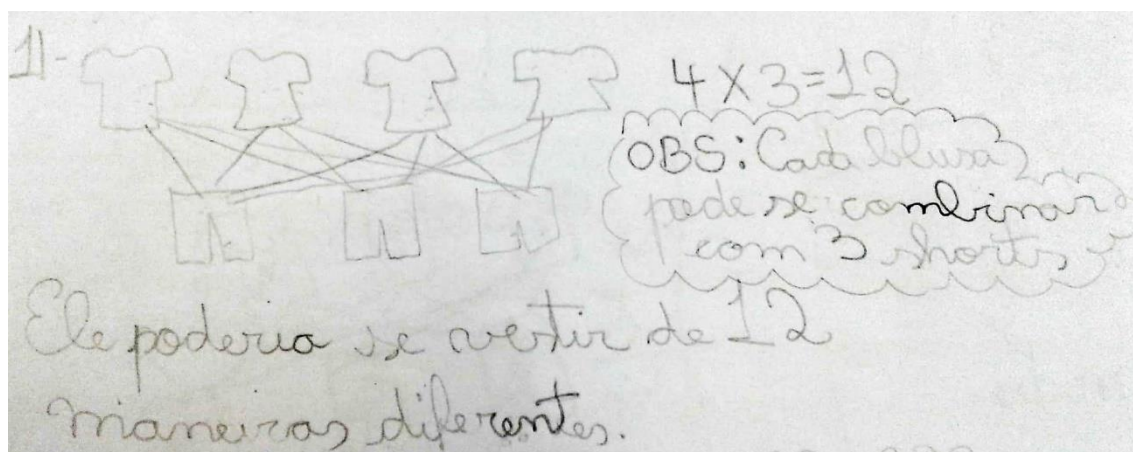 1)-
4 X 3 = 12
OBS: Cada blusa
pode se combinar
com 3 shorts
Ele poderia se vestir de 12
maneiras diferentes.